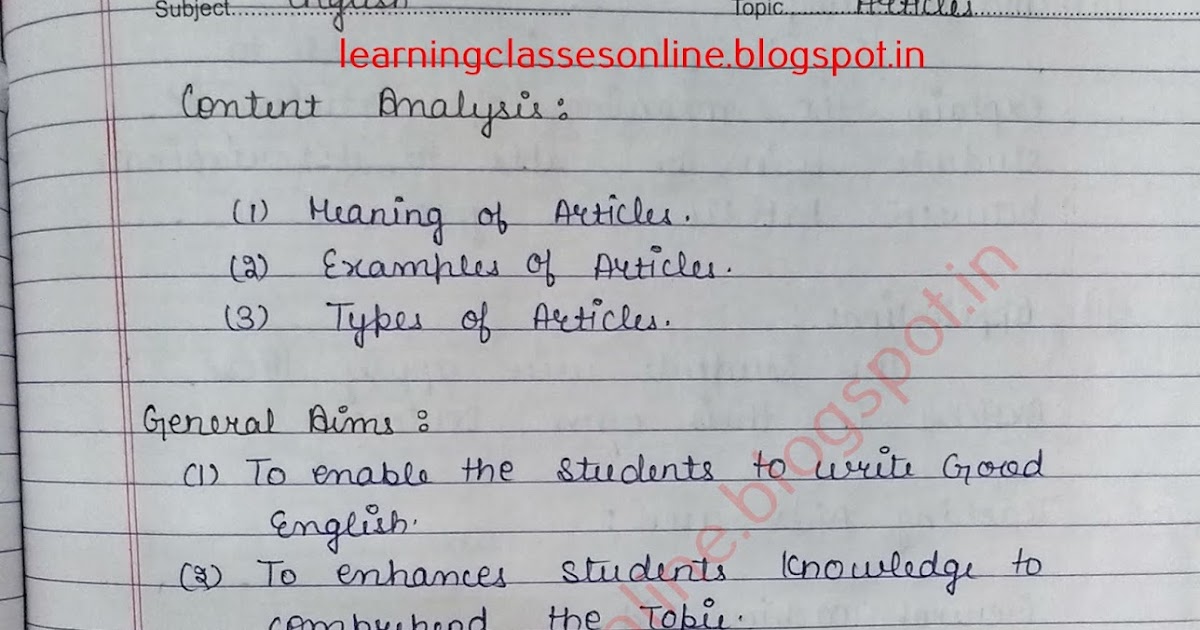 Subject English Topic Articles
learningclassesonline.blogspot.in
Content Analysis:
(1) Meaning of Articles.
(2) Examples of Articles.
(3) Types of Articles.
General Aims:
(1) To enable the Students to write Good
English.
(2) To enhances students Knowledge to
comprehend the Topic.
online.blogspot.in